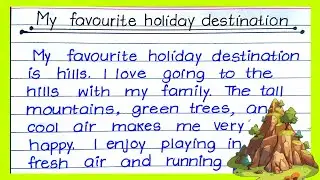 My favourite holiday destination
My favourite holiday destination
is hills. I love going to the
hills with my family. The tall
mountains, green trees, and
cool air makes me very
happy. I enjoy playing in
fresh air and running